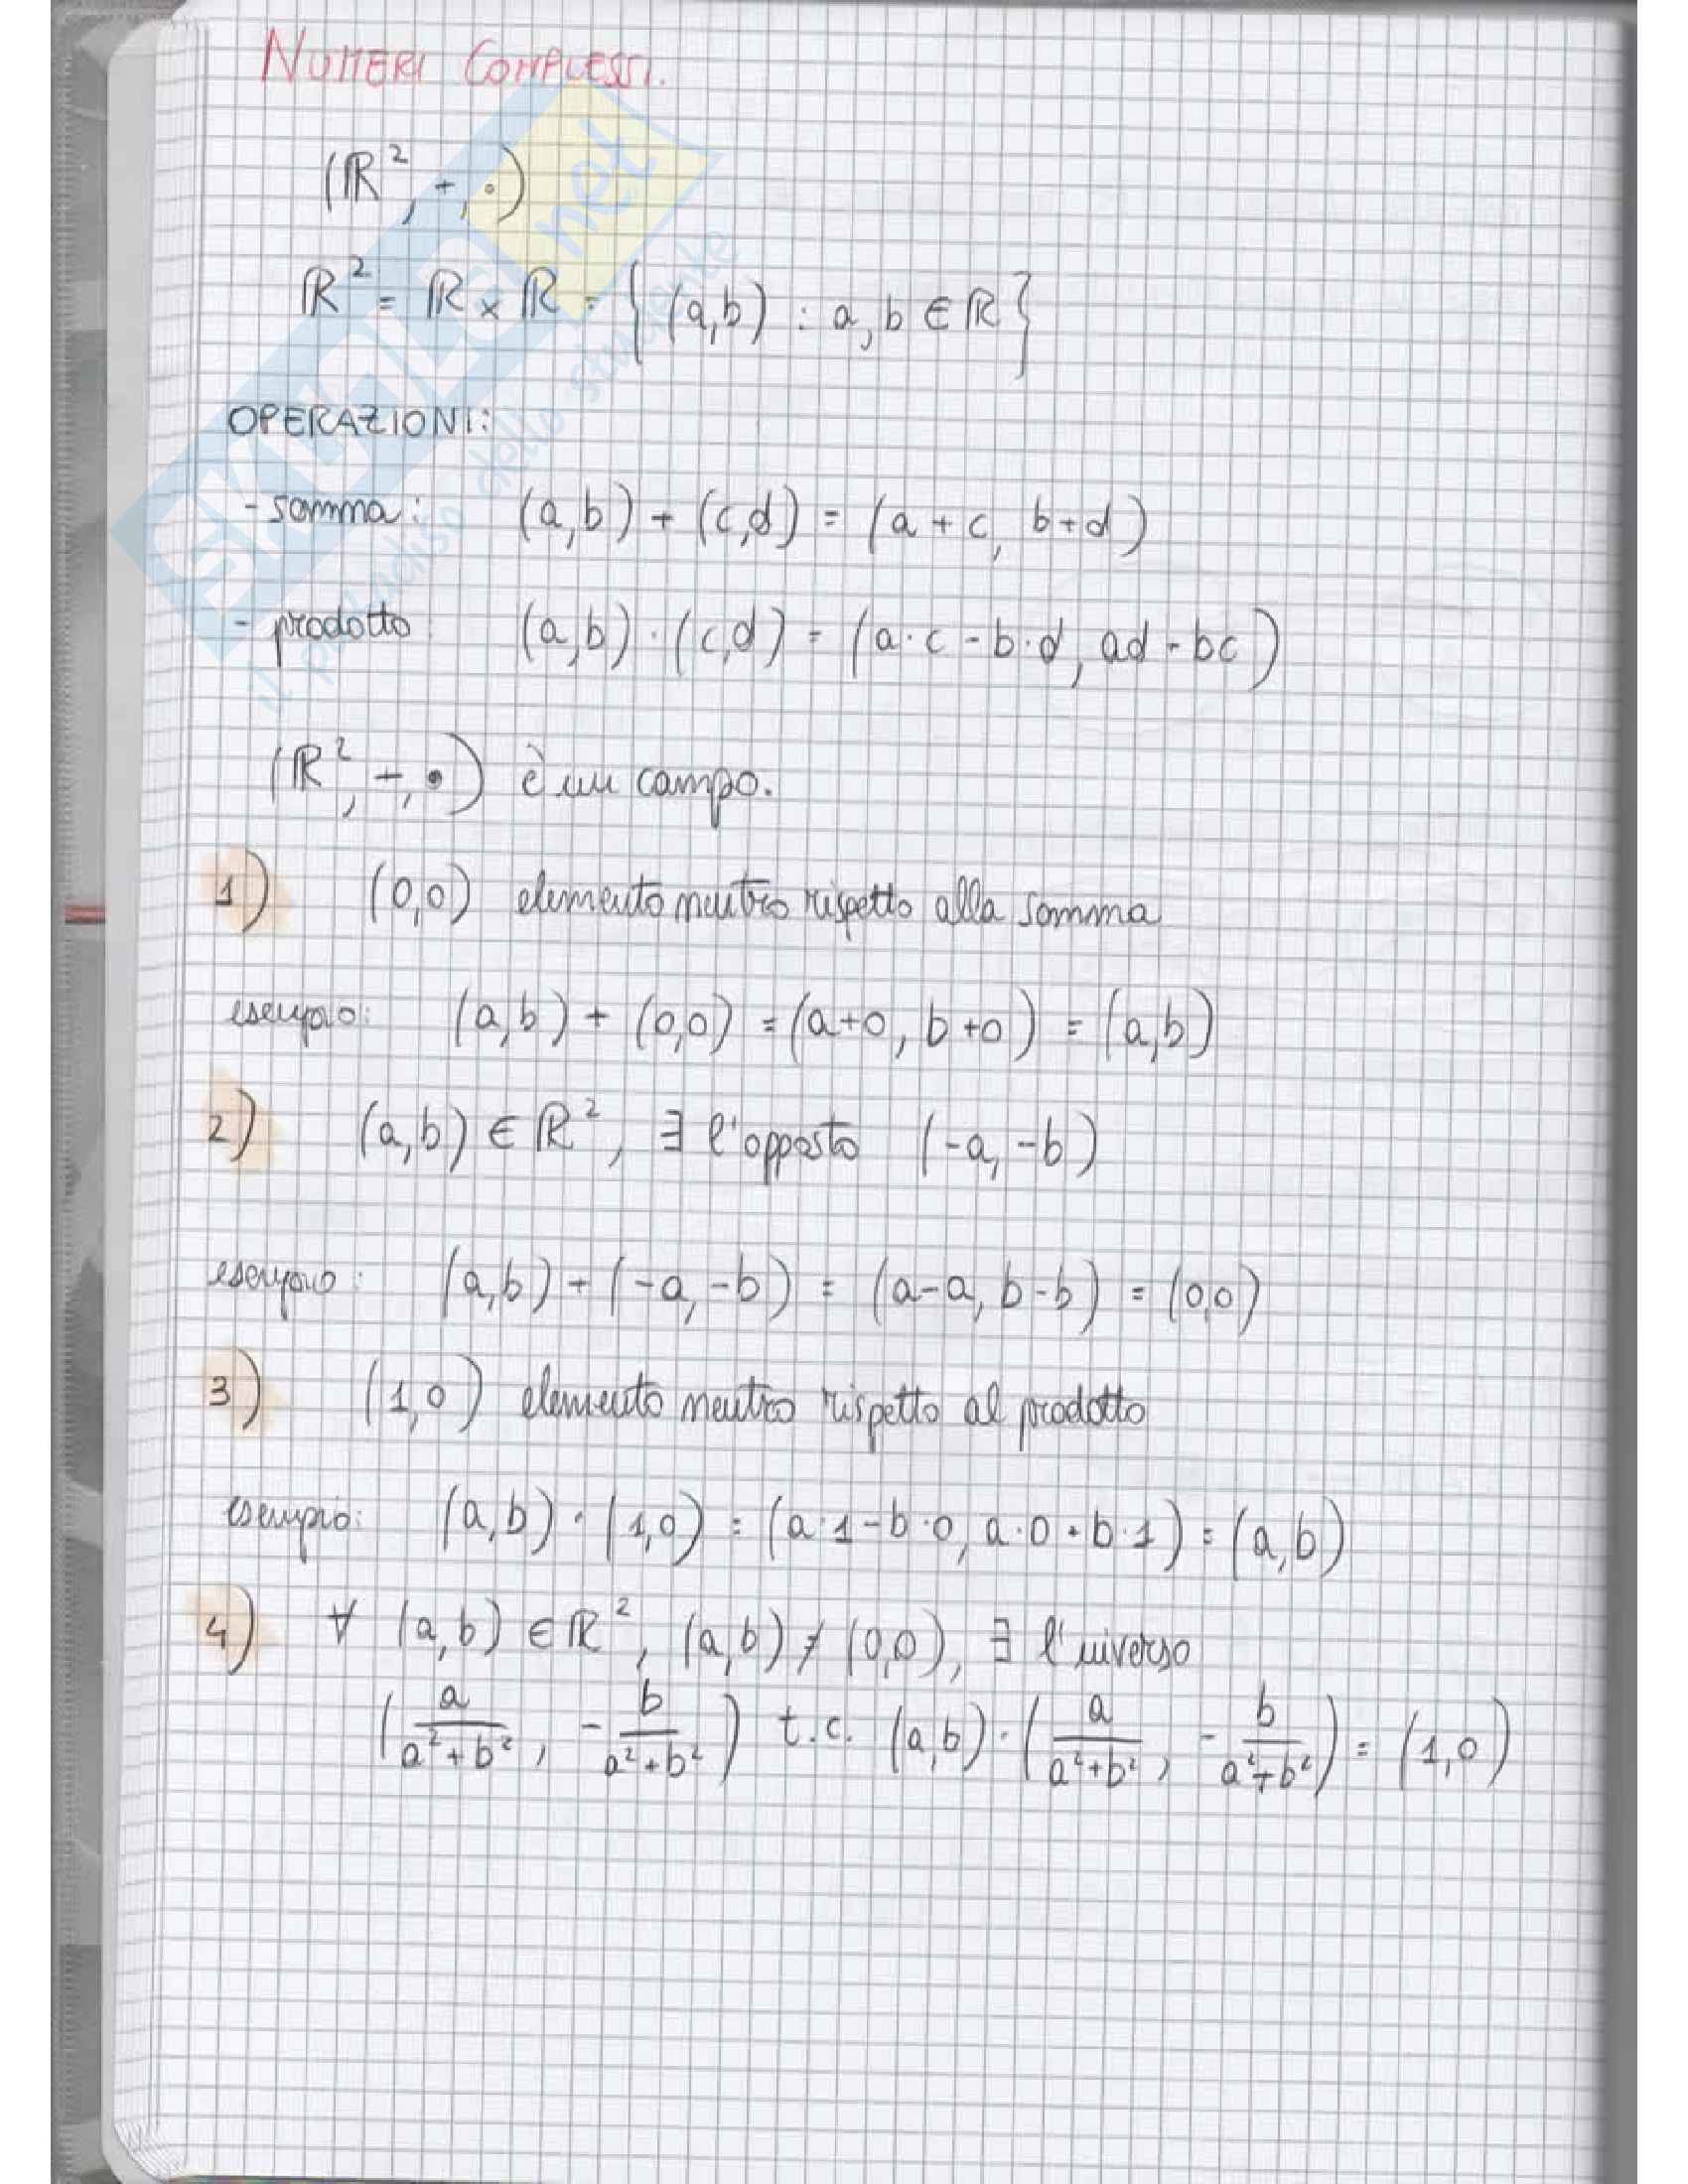 NUMERI COMPLESSI.
(ℝ², +, ·)
ℝ² = ℝ × ℝ = { (a,b) : a, b ∈ ℝ }
OPERAZIONI:
- somma: (a,b) + (c,d) = (a + c, b + d)
- prodotto (a,b) · (c,d) = (a·c - b·d, ad - bc)
(ℝ², +, ·) è un campo.
1) (0,0) elemento neutro rispetto alla somma
esempio: (a,b) + (0,0) = (a+0, b+0) = (a,b)
2) (a,b) ∈ ℝ², ∃ l'opposto (-a, -b)
esempio: (a,b) + (-a, -b) = (a-a, b-b) = (0,0)
3) (1,0) elemento neutro rispetto al prodotto
esempio: (a,b) · (1,0) = (a·1 - b·0, a·0 + b·1) = (a,b)
4) ∀ (a,b) ∈ ℝ², (a,b) ≠ (0,0), ∃ l'inverso
(a/(a²+b²), -b/(a²+b²)) t.c. (a,b) · (a/(a²+b²), -b/(a²+b²)) = (1,0)
SKUOLA.net
il paradiso dello studente